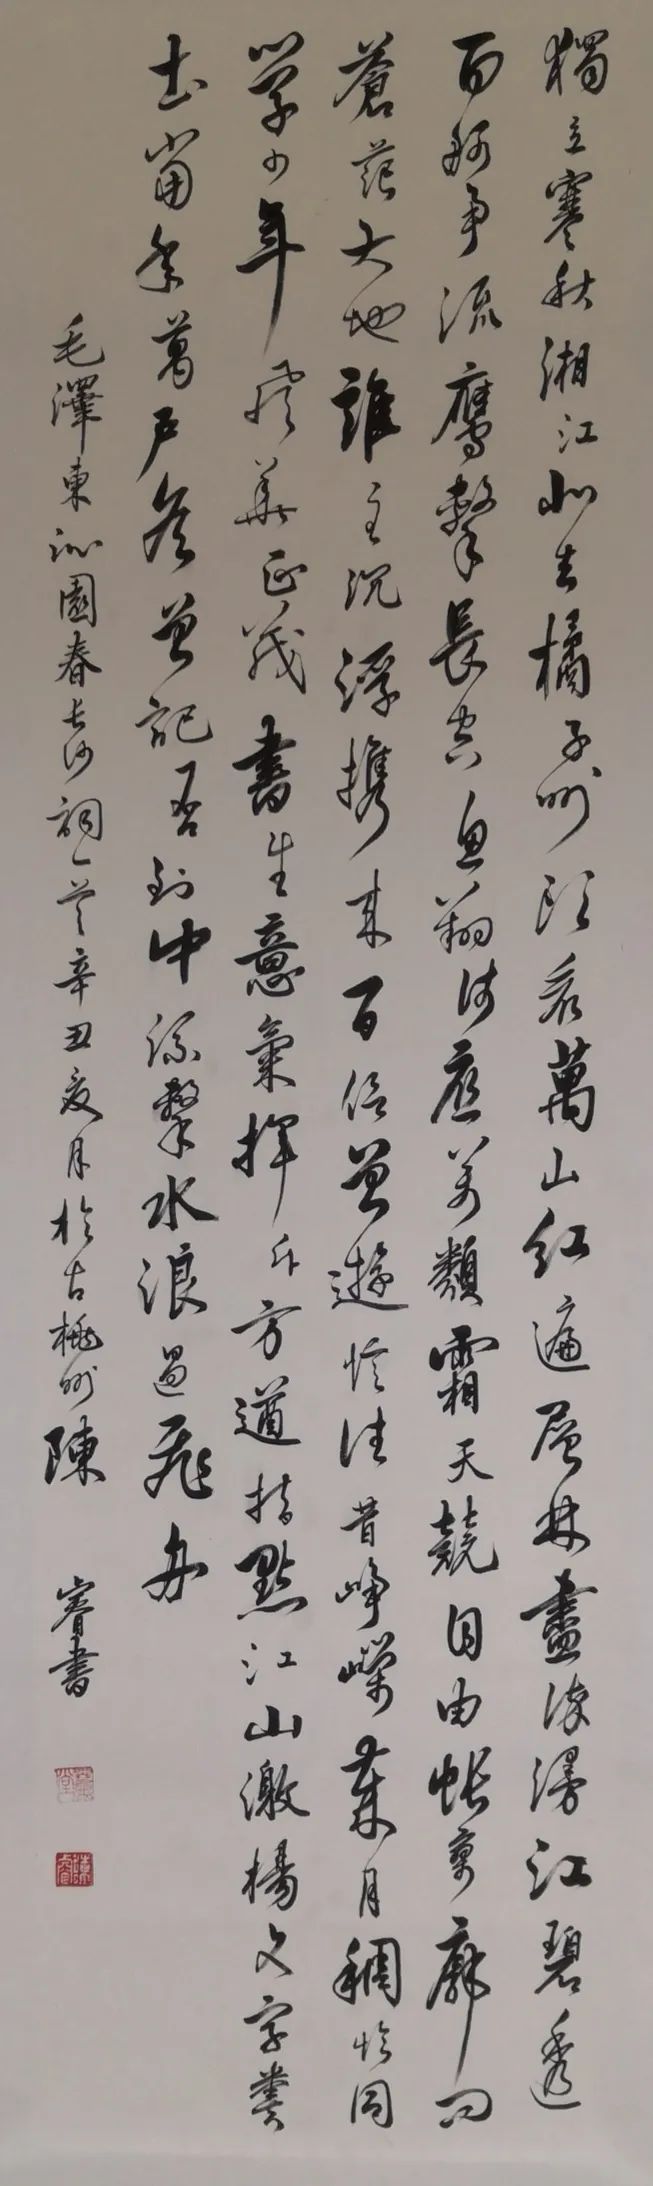 獨立寒秋湘江北去橘子州頭看萬山紅遍層林盡染漫江碧透
百舸爭流鷹擊長空魚翔淺底萬類霜天競自由悵寥廓問
蒼茫大地誰主沉浮携來百侶曾遊憶往昔崢嶸歲月稠恰同
學少年風華正茂書生意氣揮斥方遒指點江山激揚文字糞
土當年萬戶侯曾記否到中流擊水浪遏飛舟
毛澤東沁園春長沙詞一首辛丑夏月於古桃州陳睿書
陳睿